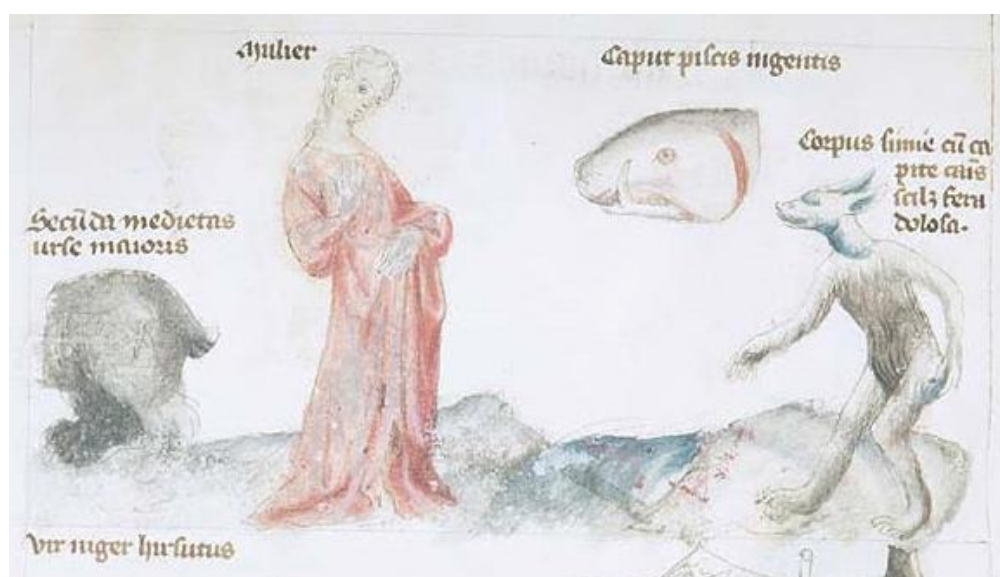 Mulier
Caput piscis ingentis
Corpus simie cū ca
pite canis
scilz fera
dolosa.
Secūda medietas
urse maioris
Vir niger hirsutus